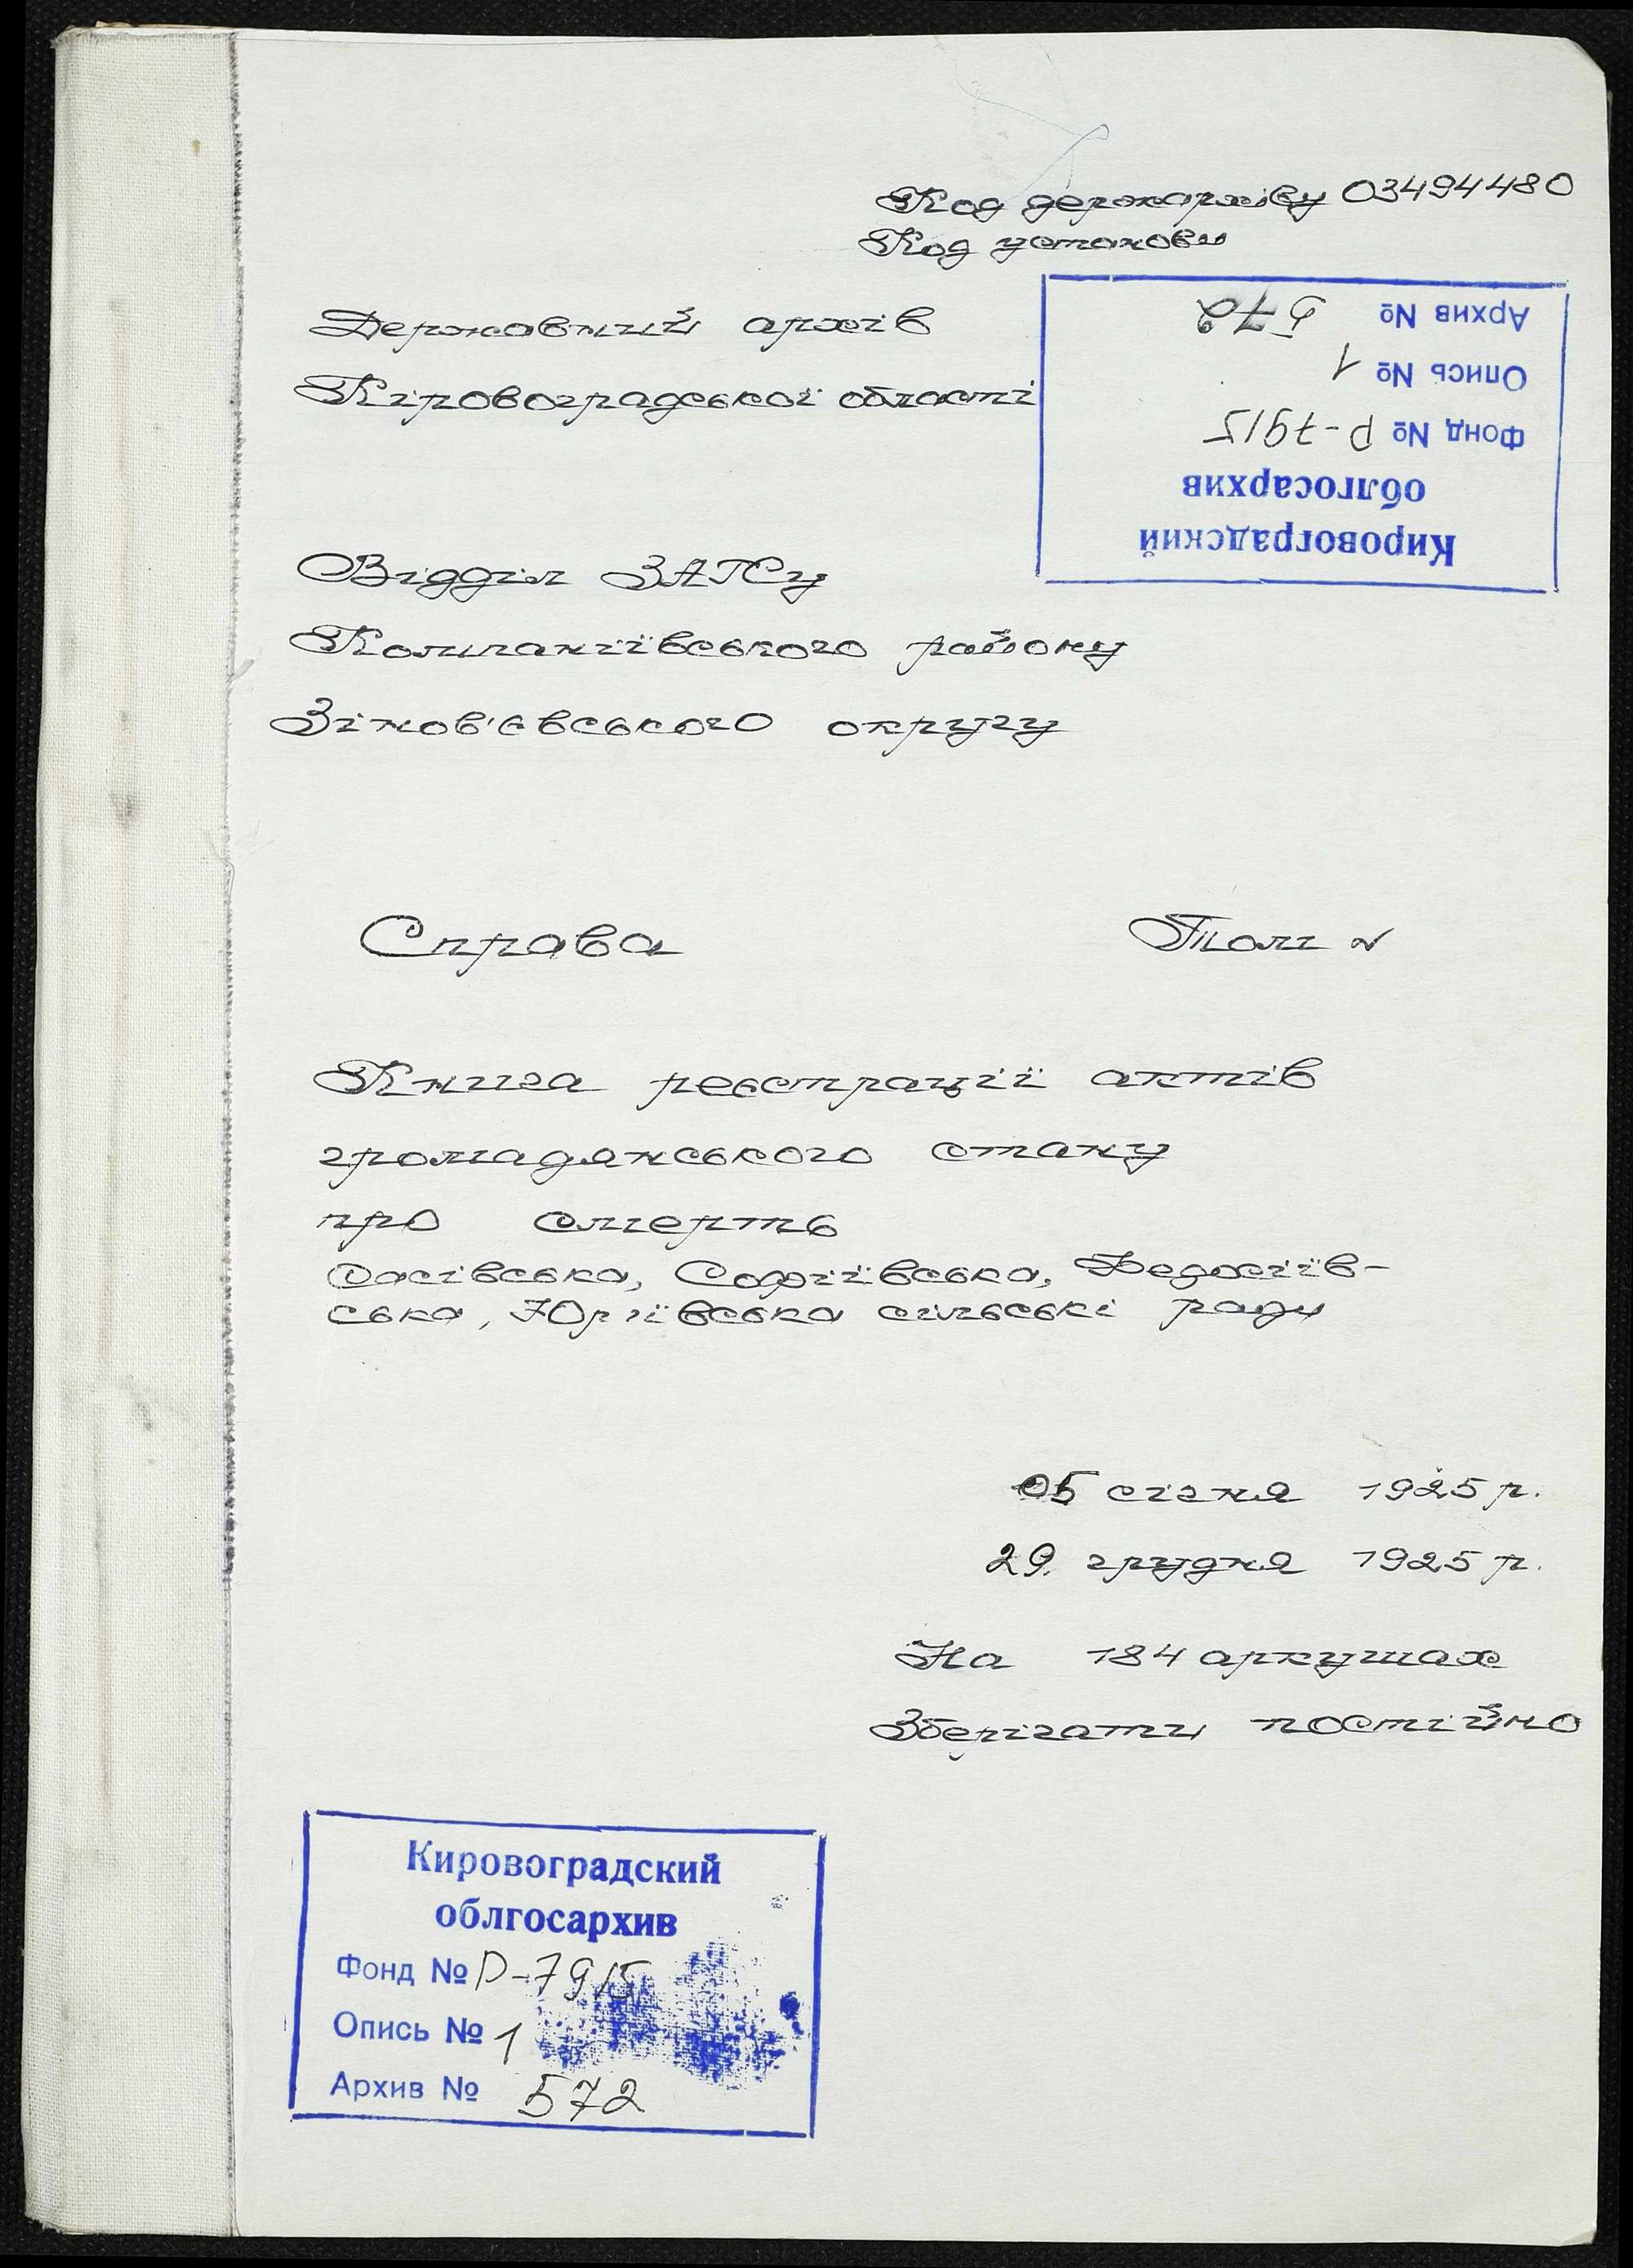 Код держархіву 03494480
Код установи
Державний архів
Кіровоградської області
Кировоградский
облгосархив
Фонд № Р-7915
Опись № 1
Архив № 572
Відділ ЗАГСу
Компаніївського району
Зінов'євського округу
Справа Том №
Книга реєстрації актів
громадянського стану
про смерть
Сасівська, Софіївська,
ська, Юріївська сільські ради
05 січня 1925 р.
29. грудня 1925 р.
На 184 аркушах
Зберігати постійно
Кировоградский
облгосархив
Фонд № Р-7915
Опись № 1
Архив № 572